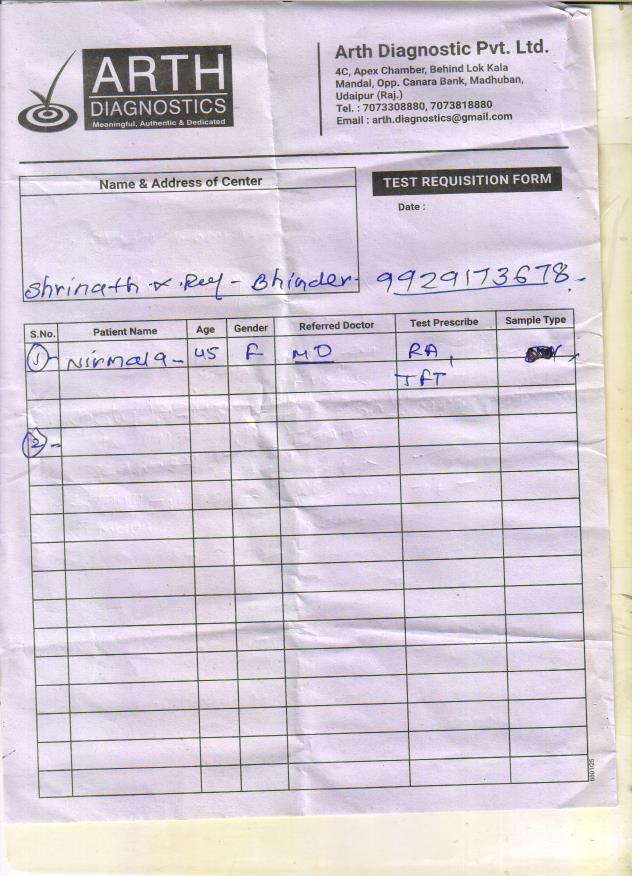 ARTH
DIAGNOSTICS
Meaningful, Authentic & Dedicated
Arth Diagnostic Pvt. Ltd.
4C, Apex Chamber, Behind Lok Kala
Mandal, Opp. Canara Bank, Madhuban,
Udaipur (Raj.)
Tel. : 7073308880, 7073818880
Email : arth.diagnostics@gmail.com
Name & Address of Center
TEST REQUISITION FORM
Date :
Shrinath X.Ray - Bhinder- 9929173678.-
S.No. Patient Name Age Gender Referred Doctor Test Prescribe Sample Type
1- Nirmala - 45 F MD RA,
TFT
2-
8801/25